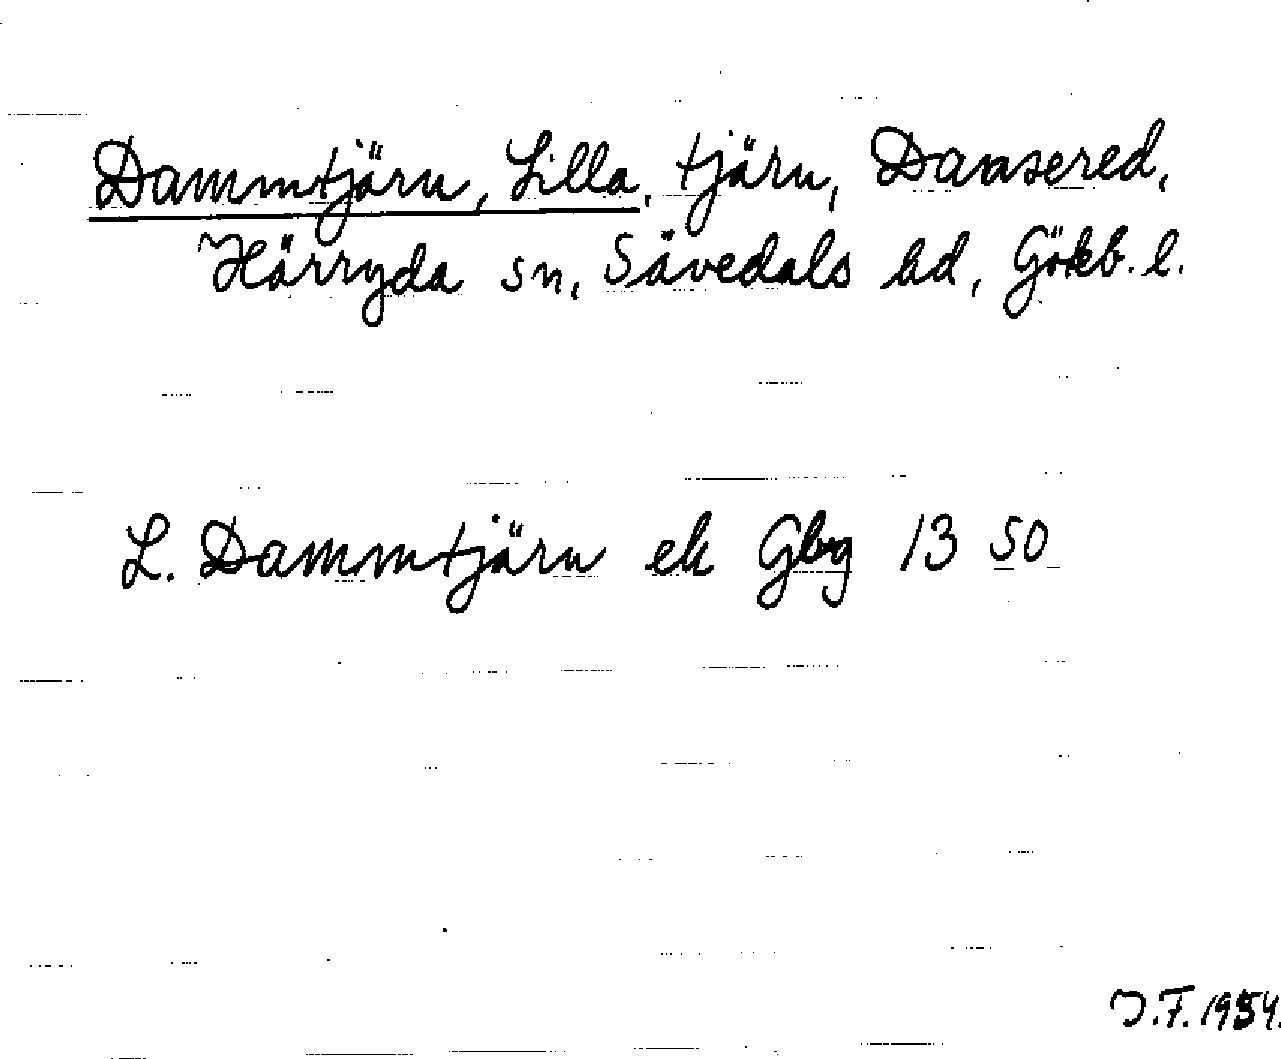 Dammtjärn, Lilla, tjärn, Dansered,
Härryda sn, Sävedals hd, Göteb. l.
L. Dammtjärn ek Gbg 13 50
J.F. 1954.